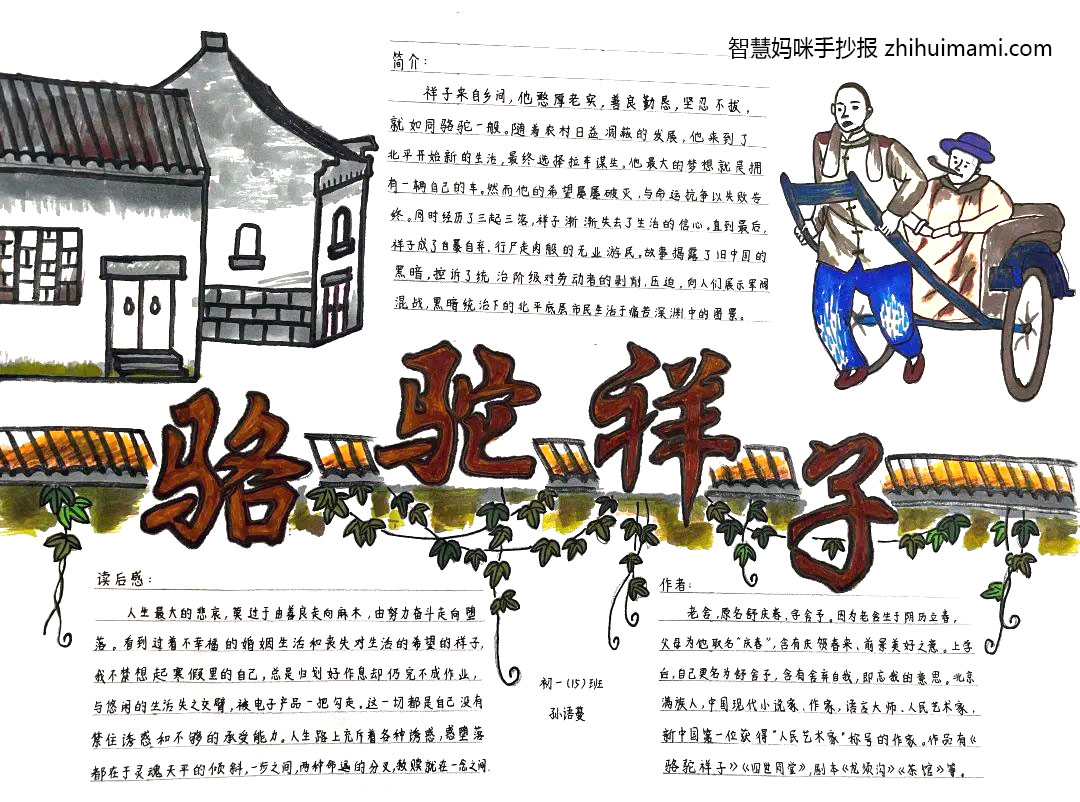 智慧妈咪手抄报 zhihuimami.com
简介：
祥子来自乡间，他憨厚老实，善良勤恳，坚忍不拔，
就如同骆驼一般。随着农村日益凋蔽的发展，他来到了
北平开始新的生活，最终选择拉车谋生。他最大的梦想就是拥
有一辆自己的车。然而他的希望屡屡破灭，与命运抗争以失败告
终。同时经历了三起三落，祥子渐渐失去了生活的信心。直到最后，
祥子成了自暴自弃、行尸走肉般的无业游民。故事揭露了旧中国的
黑暗，控诉了统治阶级对劳动者的剥削、压迫，向人们展示军阀
混战，黑暗统治下的北平底层市民生活于痛苦深渊中的图景。
骆驼祥子
读后感：
人生最大的悲哀，莫过于由善良走向麻木，由努力奋斗走向堕
落。看到过着不幸福的婚姻生活和丧失对生活的希望的祥子，
我不禁想起寒假里的自己，总是归划好作息却仍完不成作业，
与悠闲的生活失之交臂，被电子产品一把勾走。这一切都是自己没有
禁住诱惑和不够的承受能力。人生路上充斥着各种诱惑，惑堕落
都在于灵魂天平的倾斜，一步之间，两种命运的分叉，救赎就在一念之间.
初一（15）班
孙语蔓
作者：
老舍，原名舒庆春，字舍予。因为老舍生于阴历立春，
父母为他取名“庆春”，含有庆贺春来、前景美好之意。上学
后，自己更名为舒舍予，含有舍弃自我，即忘我的意思。北京
满族人，中国现代小说家、作家，语言大师、人民艺术家，
新中国第一位获得“人民艺术家”称号的作家。作品有《
骆驼祥子》《四世同堂》，剧本《龙须沟》《茶馆》等。